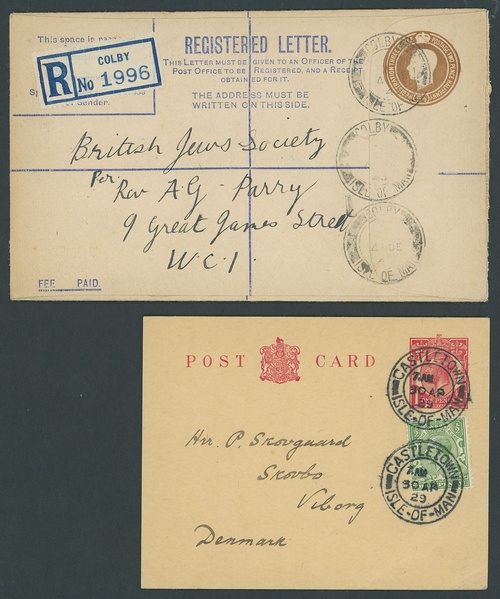 This space is
REGISTERED LETTER.
THIS LETTER MUST BE GIVEN TO AN OFFICER OF THE
POST OFFICE TO BE REGISTERED, AND A
OBTAINED FOR IT.
THE ADDRESS MUST BE
WRITTEN ON THIS SIDE.
COLBY
R No 1996
of Sender.
COLBY
ISLE OF
COLBY
ISLE OF MAN
COLBY
ISLE OF MAN
British Jews Society
Per. Rev A.G. Parry
9 Great James Street
W.C.1.
FEE PAID.
POST CARD
CASTLETOWN
7 AM
30 AP
29
ISLE-OF-MAN
CASTLETOWN
7 AM
30 AP
29
ISLE-OF-MAN
Hrr. P. Skovguard
Skovbo
Viborg
Denmark